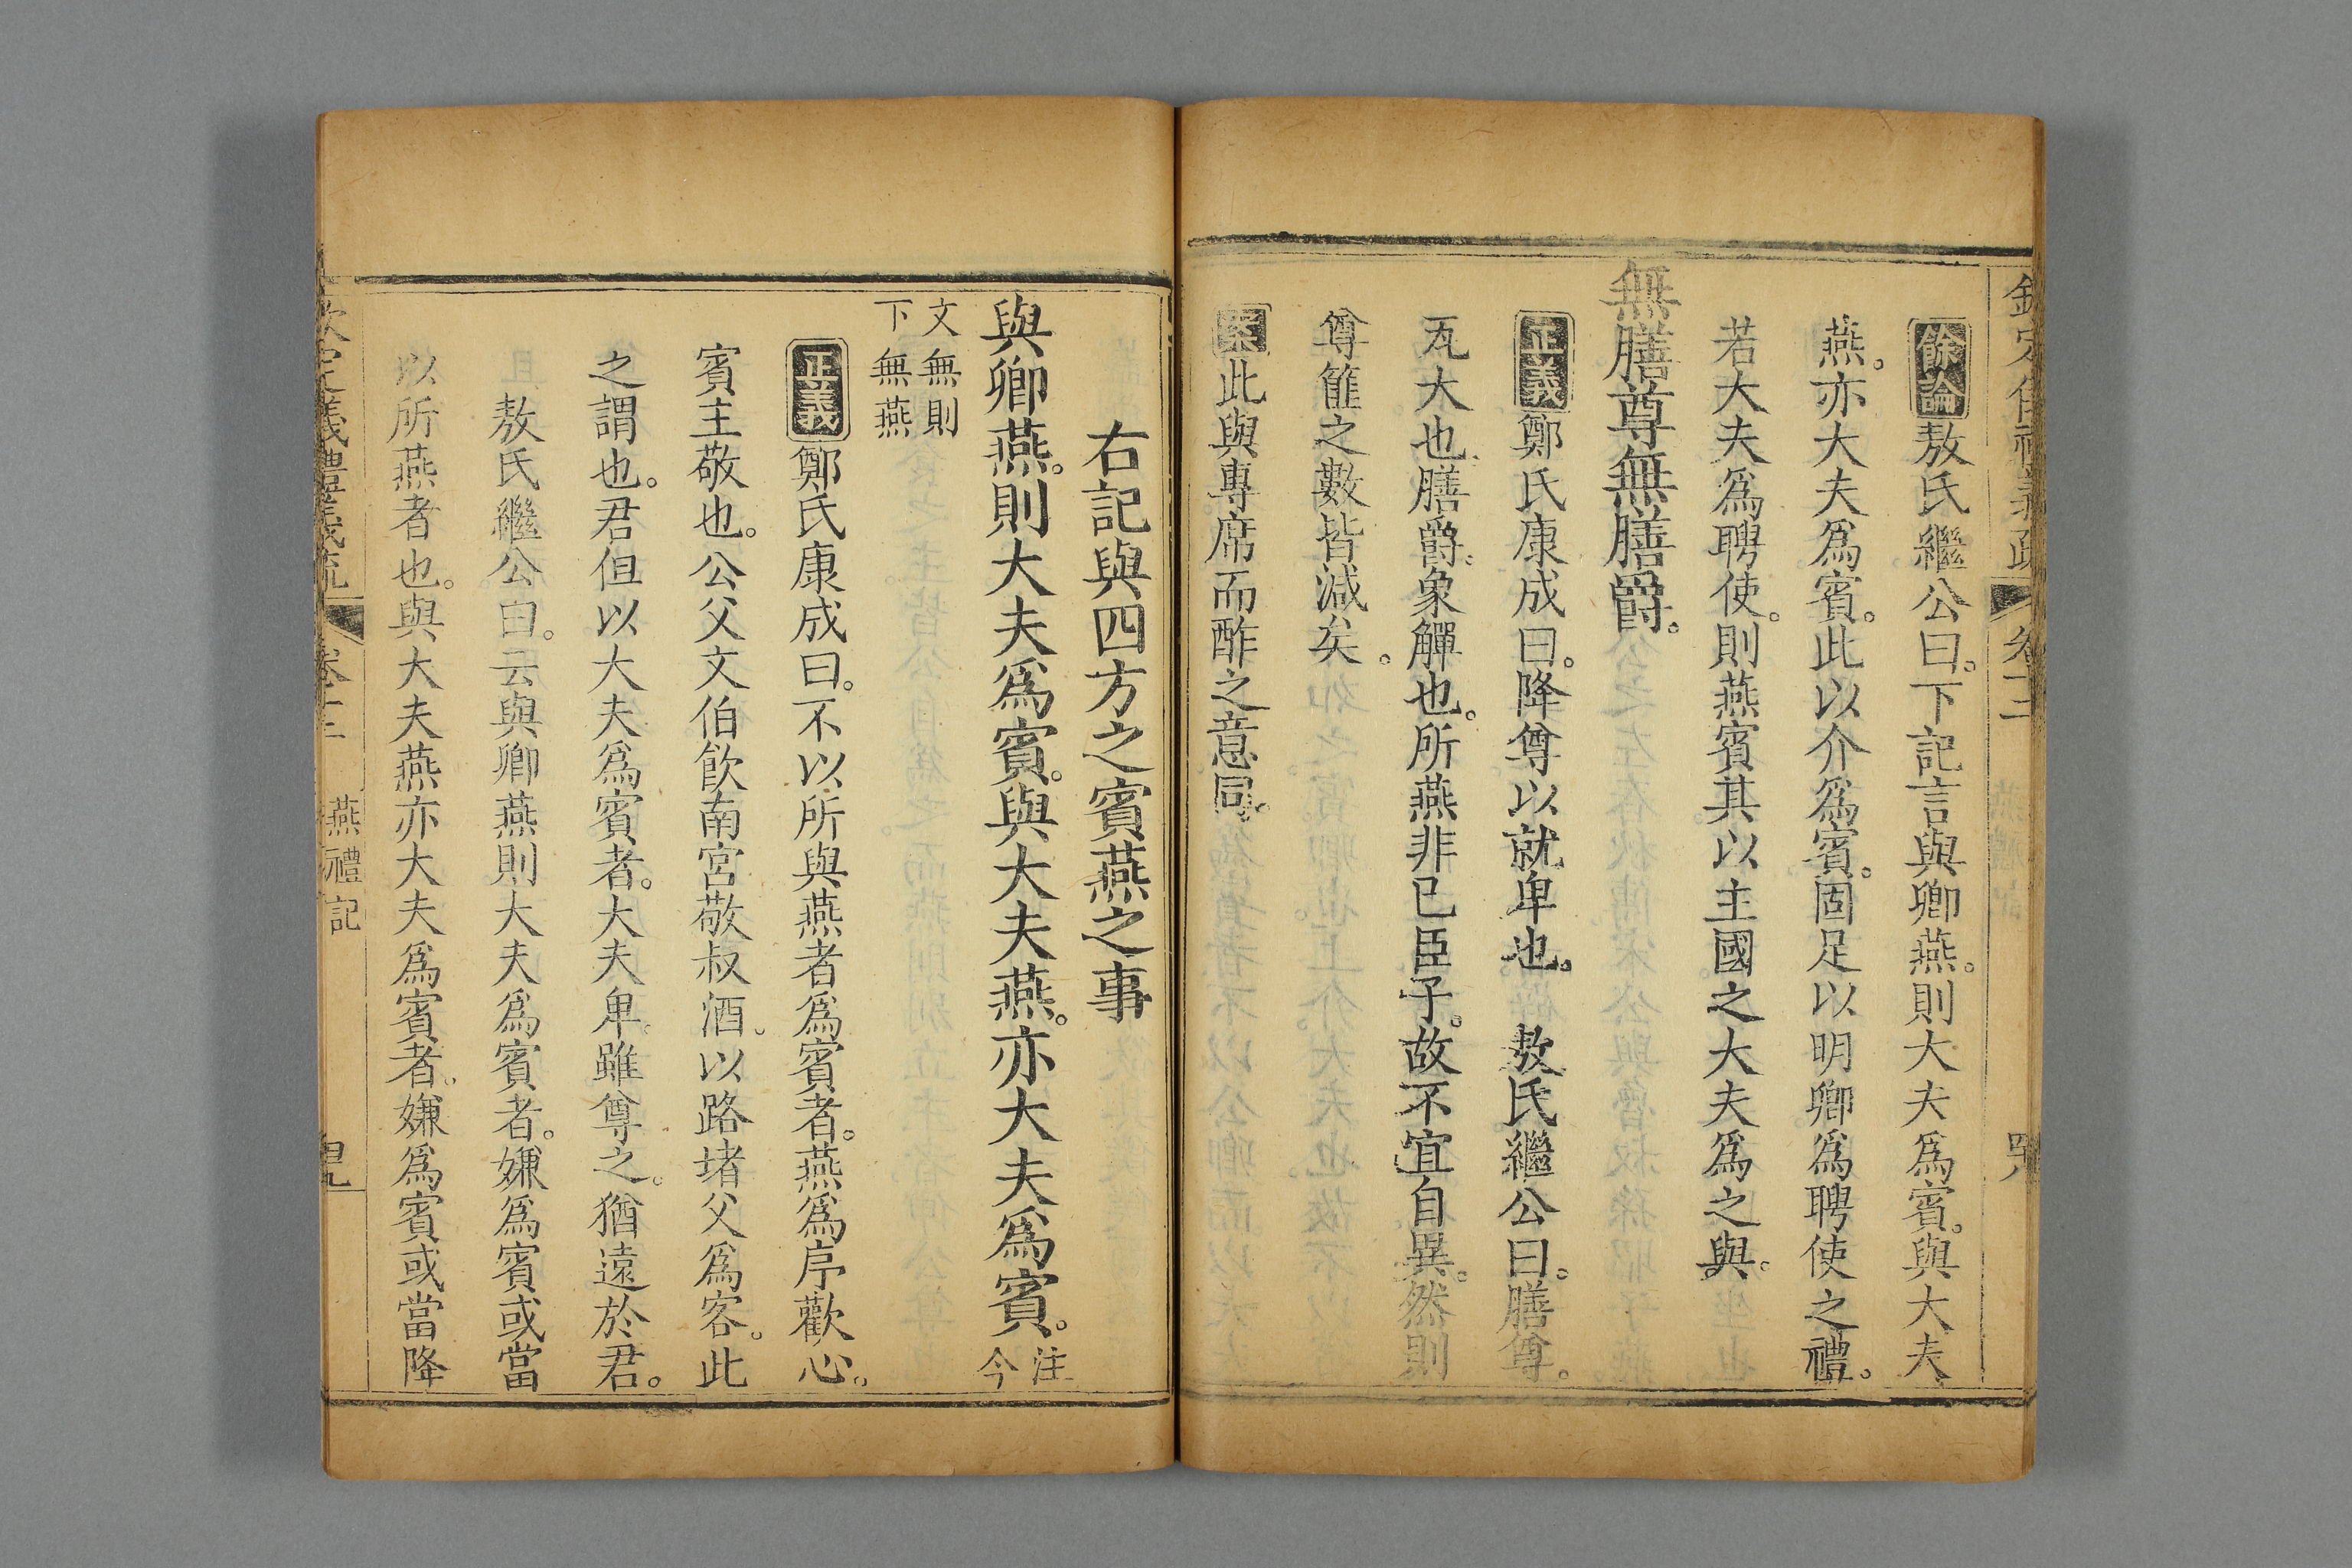 餘論敖氏繼公曰。下記言與卿燕。則大夫爲賓。與大夫
燕。亦大夫爲賓。此以介爲賓。固足以明卿爲聘使之禮。
若大夫爲聘使。則燕賓其以主國之大夫爲之與。
無膳尊無膳爵。
正義鄭氏康成曰。降尊以就卑也。 敖氏繼公曰。膳尊。
瓦大也。膳爵。象觶也。所燕非已臣子。故不宜自異。然則
尊篚之數皆減矣。
案此與專席而酢之意同。
右記與四方之賓燕之事
與卿燕。則大夫爲賓。與大夫燕。亦大夫爲賓。注今
文無則
下無燕
正義鄭氏康成曰。不以所與燕者爲賓者。燕爲序歡心。
賓主敬也。公父文伯飲南宮敬叔酒。以路堵父爲客。此
之謂也。君但以大夫爲賓者。大夫卑。雖尊之。猶遠於君。
敖氏繼公曰。云與卿燕則大夫爲賓者。嫌爲賓或當
以所燕者也。與大夫燕亦大夫爲賓者。嫌爲賓或當降
欽定儀禮義疏 卷十二 燕禮記